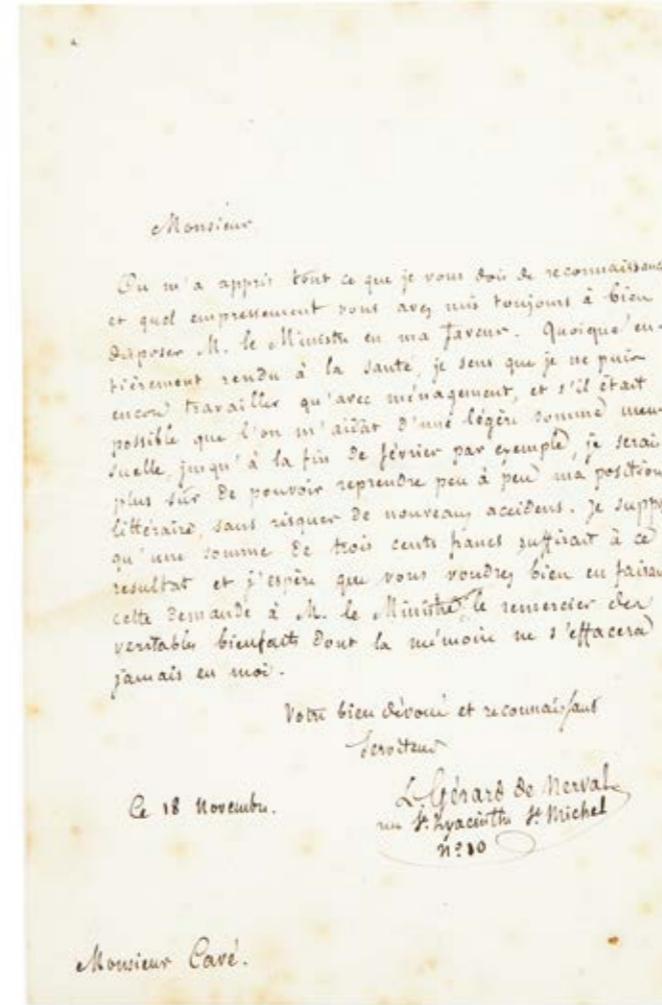 Monsieur
On m'a appris tout ce que je vous dois de reconnaissance
et quel empressement vous avez mis toujours à bien
disposer M. le Ministre en ma faveur. Quoique en-
tièrement rendu à la santé, je sens que je ne puis
encore travailler qu'avec ménagement, et s'il était
possible que l'on m'aidât d'une légère somme men-
suelle, jusqu'à la fin de février par exemple, je serais
plus sûr de pouvoir reprendre peu à peu ma position
littéraire, sans risquer de nouveaux accidens. Je suppo
qu'une somme de trois cents francs suffirait à ce
resultat et j'espère que vous voudrez bien en faisant
cette demande à M. le Ministre le remercier des
veritables bienfaits dont la mémoire ne s'effacera
jamais en moi.
Votre bien dévoué et reconnaissant
serviteur
L. Gérard de Nerval
Ce 18 Novembre.
rue St. Hyacinthe St Michel
nº 10
Monsieur Cavé.